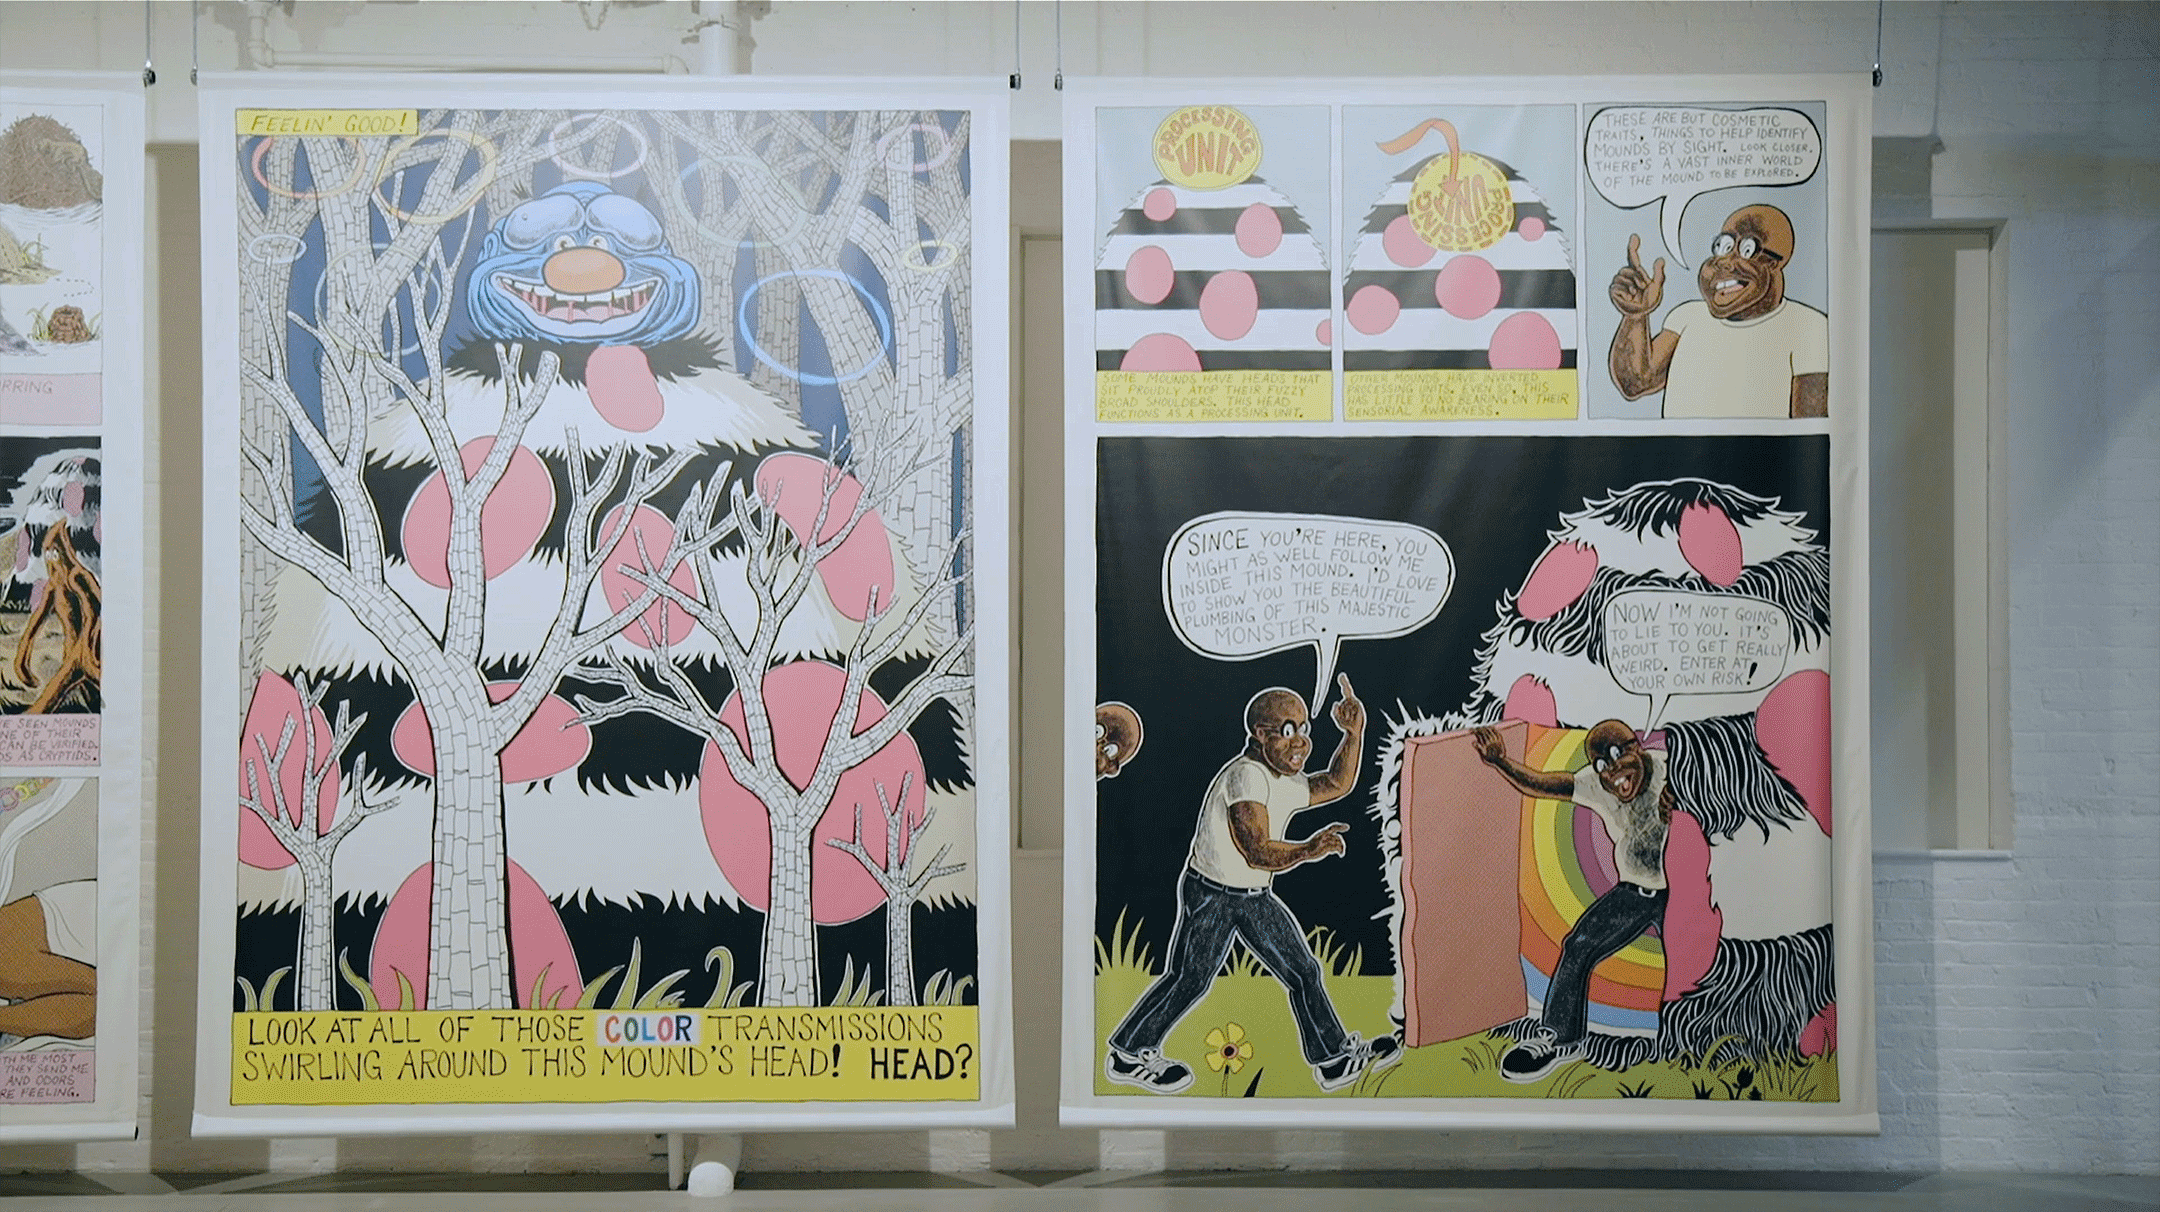 RRING
VE SEEN MOUNDS
NE OF THEIR
CAN BE VERIFIED.
DS AS CRYPTIDS.
TH ME MOST
THEY SEND ME
AND ODORS
RE FEELING.
FEELIN' GOOD!
LOOK AT ALL OF THOSE COLOR TRANSMISSIONS
SWIRLING AROUND THIS MOUND'S HEAD! HEAD?
PROCESSING
UNIT
SOME MOUNDS HAVE HEADS THAT
SIT PROUDLY ATOP THEIR FUZZY
BROAD SHOULDERS. THIS HEAD
FUNCTIONS AS A PROCESSING UNIT.
PROCESSING
UNIT
OTHER MOUNDS HAVE INVERTED
PROCESSING UNITS. EVEN SO, THIS
HAS LITTLE TO NO BEARING ON THEIR
SENSORIAL AWARENESS.
THESE ARE BUT COSMETIC
TRAITS, THINGS TO HELP IDENTIFY
MOUNDS BY SIGHT. LOOK CLOSER.
THERE'S A VAST INNER WORLD
OF THE MOUND TO BE EXPLORED.
SINCE YOU'RE HERE, YOU
MIGHT AS WELL FOLLOW ME
INSIDE THIS MOUND. I'D LOVE
TO SHOW YOU THE BEAUTIFUL
PLUMBING OF THIS MAJESTIC
MONSTER.
NOW I'M NOT GOING
TO LIE TO YOU. IT'S
ABOUT TO GET REALLY
WEIRD. ENTER AT
YOUR OWN RISK!